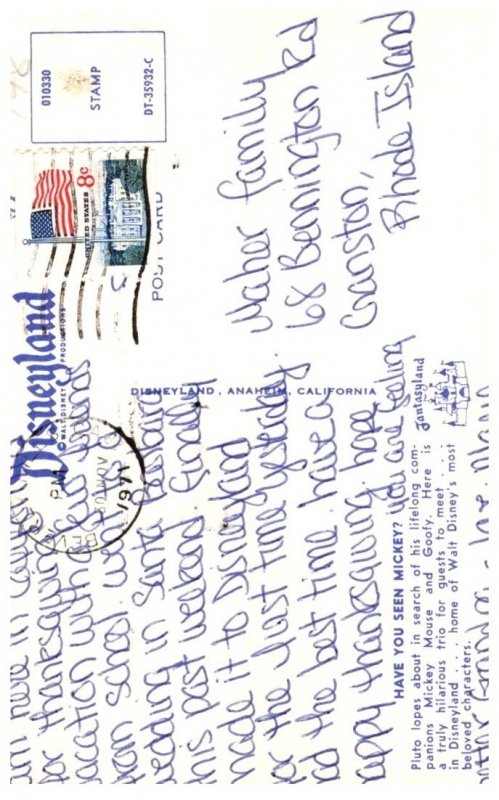 Disneyland
© WALT DISNEY PRODUCTIONS
am here in
for thanksgiving
vacation with a few friends
from school. went to a
wedding in Santa Barbara
this past weekend finally
made it to Disneyland
for the first time yesterday
had the best time. have a
happy thanksgiving. hope
you are feeling
HAVE YOU SEEN MICKEY?
Pluto lopes about in search of his lifelong com-
panions Mickey Mouse and Goofy. Here is
a truly hilarious trio for guests to meet . . .
in Disneyland . . . . home of Walt Disney's most
beloved characters.
Fantasyland
love
DISNEYLAND, ANAHEIM, CALIFORNIA
POST CARD
PM
NOV
1971
UNITED STATES 8c
010330
STAMP
DT-35932-C
Maher family
68 Bennington Rd
Cranston,
Rhode Island